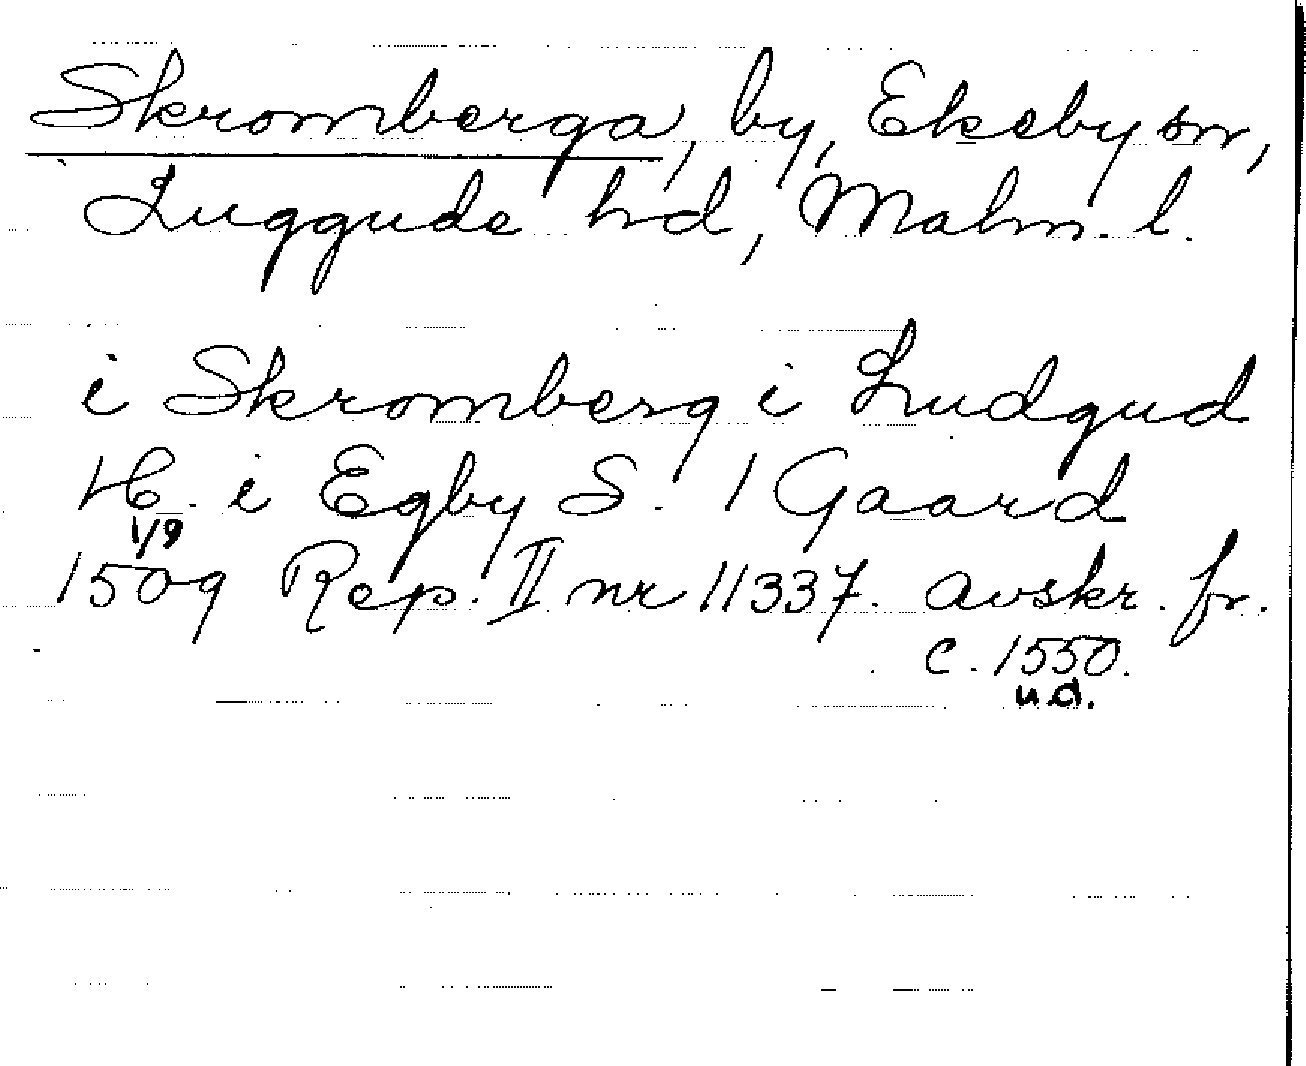 Skromberga, by, Ekeby sn,
Luggude hd, Malm. l.
i Skromberg i Ludgud
H. i Egby S. 1 Gaard
1/9
1509 Rep. II nr 11337. Avskr. fr.
c. 1550.
u.d.